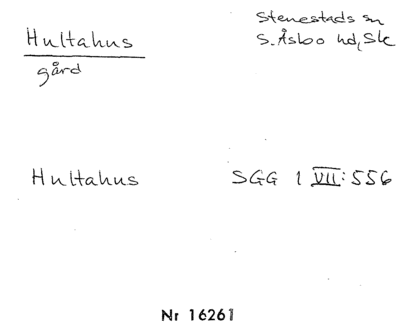 Hultahus
gård
Stenestads sn
S. Åsbo hd, Sk
Hultahus
SGG 1 VII: 556
Nr 16261